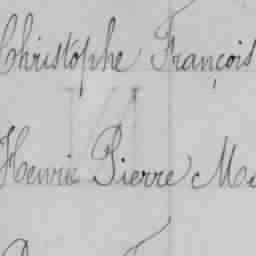 Christophe François
Henrie Pierre